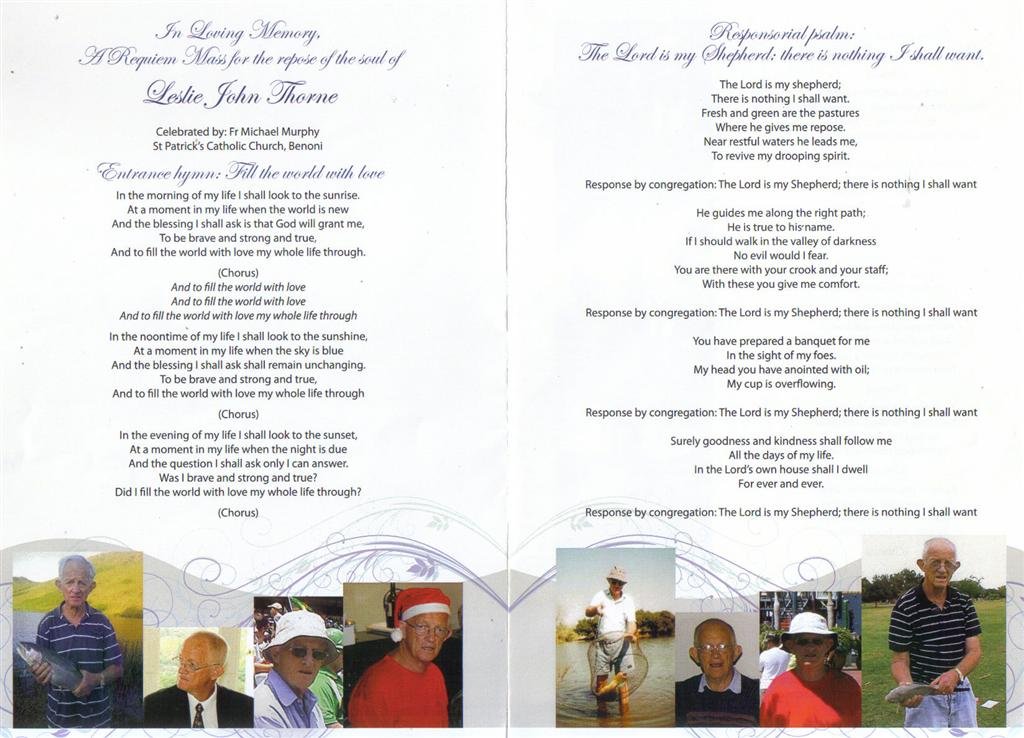 In Loving Memory,
A Requiem Mass for the repose of the soul of
Leslie John Thorne
Celebrated by: Fr Michael Murphy
St Patrick's Catholic Church, Benoni
Entrance hymn: Fill the world with love
In the morning of my life I shall look to the sunrise.
At a moment in my life when the world is new
And the blessing I shall ask is that God will grant me,
To be brave and strong and true,
And to fill the world with love my whole life through.
(Chorus)
And to fill the world with love
And to fill the world with love
And to fill the world with love my whole life through
In the noontime of my life I shall look to the sunshine,
At a moment in my life when the sky is blue
And the blessing I shall ask shall remain unchanging.
To be brave and strong and true,
And to fill the world with love my whole life through
(Chorus)
In the evening of my life I shall look to the sunset,
At a moment in my life when the night is due
And the question I shall ask only I can answer.
Was I brave and strong and true?
Did I fill the world with love my whole life through?
(Chorus)
Responsorial psalm:
The Lord is my Shepherd; there is nothing I shall want.
The Lord is my shepherd;
There is nothing I shall want.
Fresh and green are the pastures
Where he gives me repose.
Near restful waters he leads me,
To revive my drooping spirit.
Response by congregation: The Lord is my Shepherd; there is nothing I shall want
He guides me along the right path;
He is true to his name.
If I should walk in the valley of darkness
No evil would I fear.
You are there with your crook and your staff;
With these you give me comfort.
Response by congregation: The Lord is my Shepherd; there is nothing I shall want
You have prepared a banquet for me
In the sight of my foes.
My head you have anointed with oil;
My cup is overflowing.
Response by congregation: The Lord is my Shepherd; there is nothing I shall want
Surely goodness and kindness shall follow me
All the days of my life.
In the Lord's own house shall I dwell
For ever and ever.
Response by congregation: The Lord is my Shepherd; there is nothing I shall want